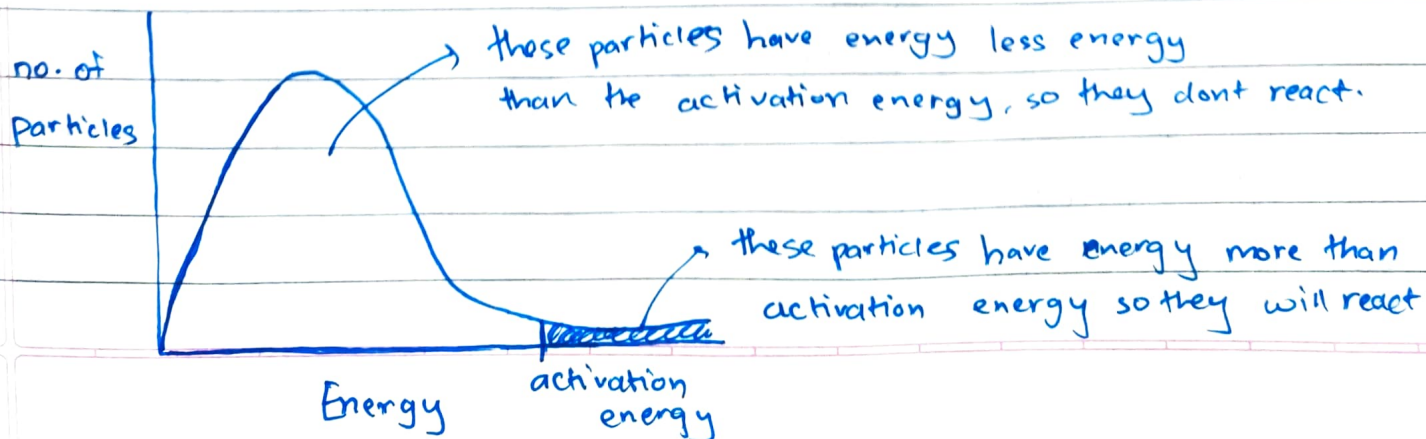 no. of
particles
these particles have energy less energy
than the activation energy, so they dont react.
these particles have energy more than
activation energy so they will react
activation
energy
Energy